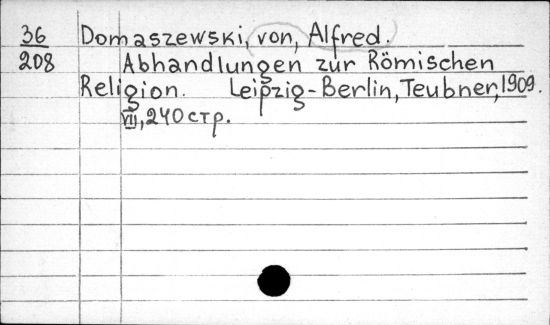 36 Domaszewski, von, Alfred.
208 Abhandlungen zur Römischen
Religion. Leipzig-Berlin, Teubner, 1909.
VII, 240 стр.